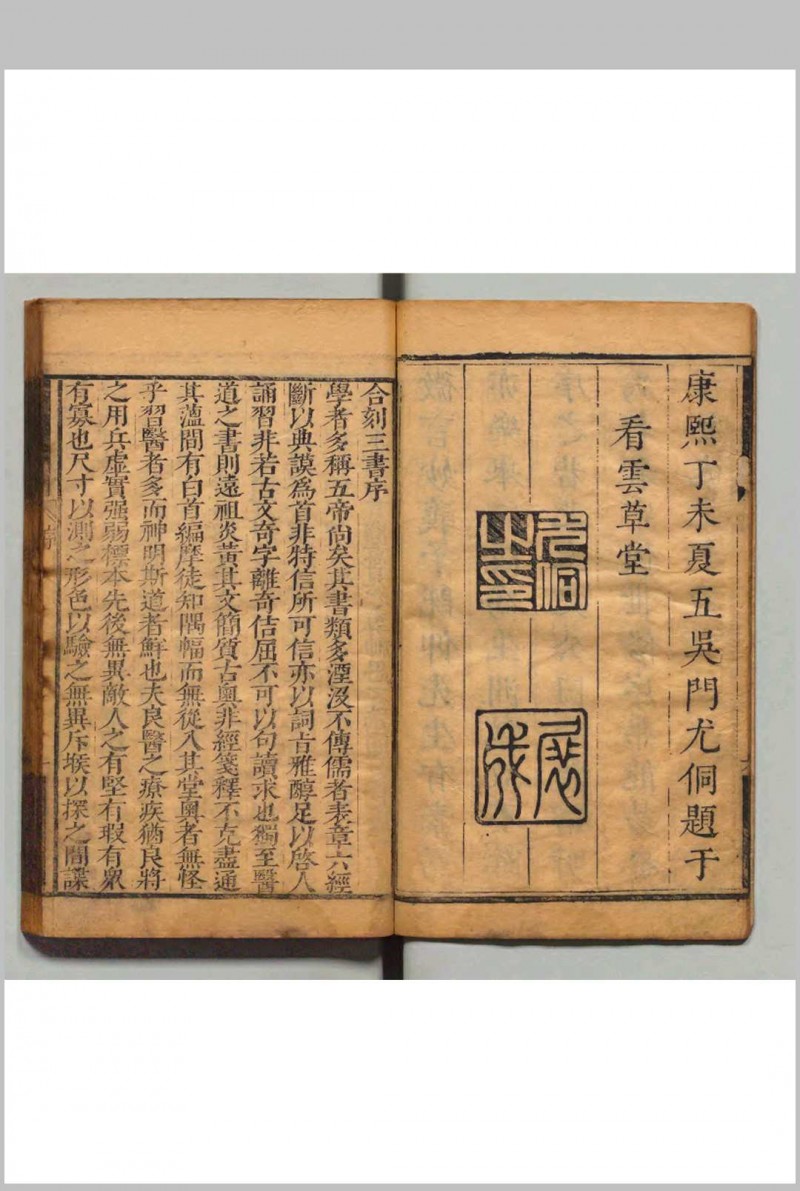 康熙丁未夏五吳門尤侗題于
看雲草堂
尤侗之印
展成
合刻三書序
學者多稱五帝尚矣其書類多湮沒不傳儒者表章六經
斷以典謨為首非特信所可信亦以詞旨雅醇足以啓人
誦習非若古文奇字離奇佶屈不可以句讀求也獨至醫
道之書則遠祖炎黃其文簡質古奧非經箋釋不克盡通
其蘊間有白首編摩徒知隅幅而無從入其堂奧者無怪
乎習醫者多而神明斯道者鮮也夫良醫之療疾猶良將
之用兵虛實强弱標本先後無異敵人之有堅有瑕有眾
有寡也尺寸以測之形色以驗之無異斥堠以探之間諜